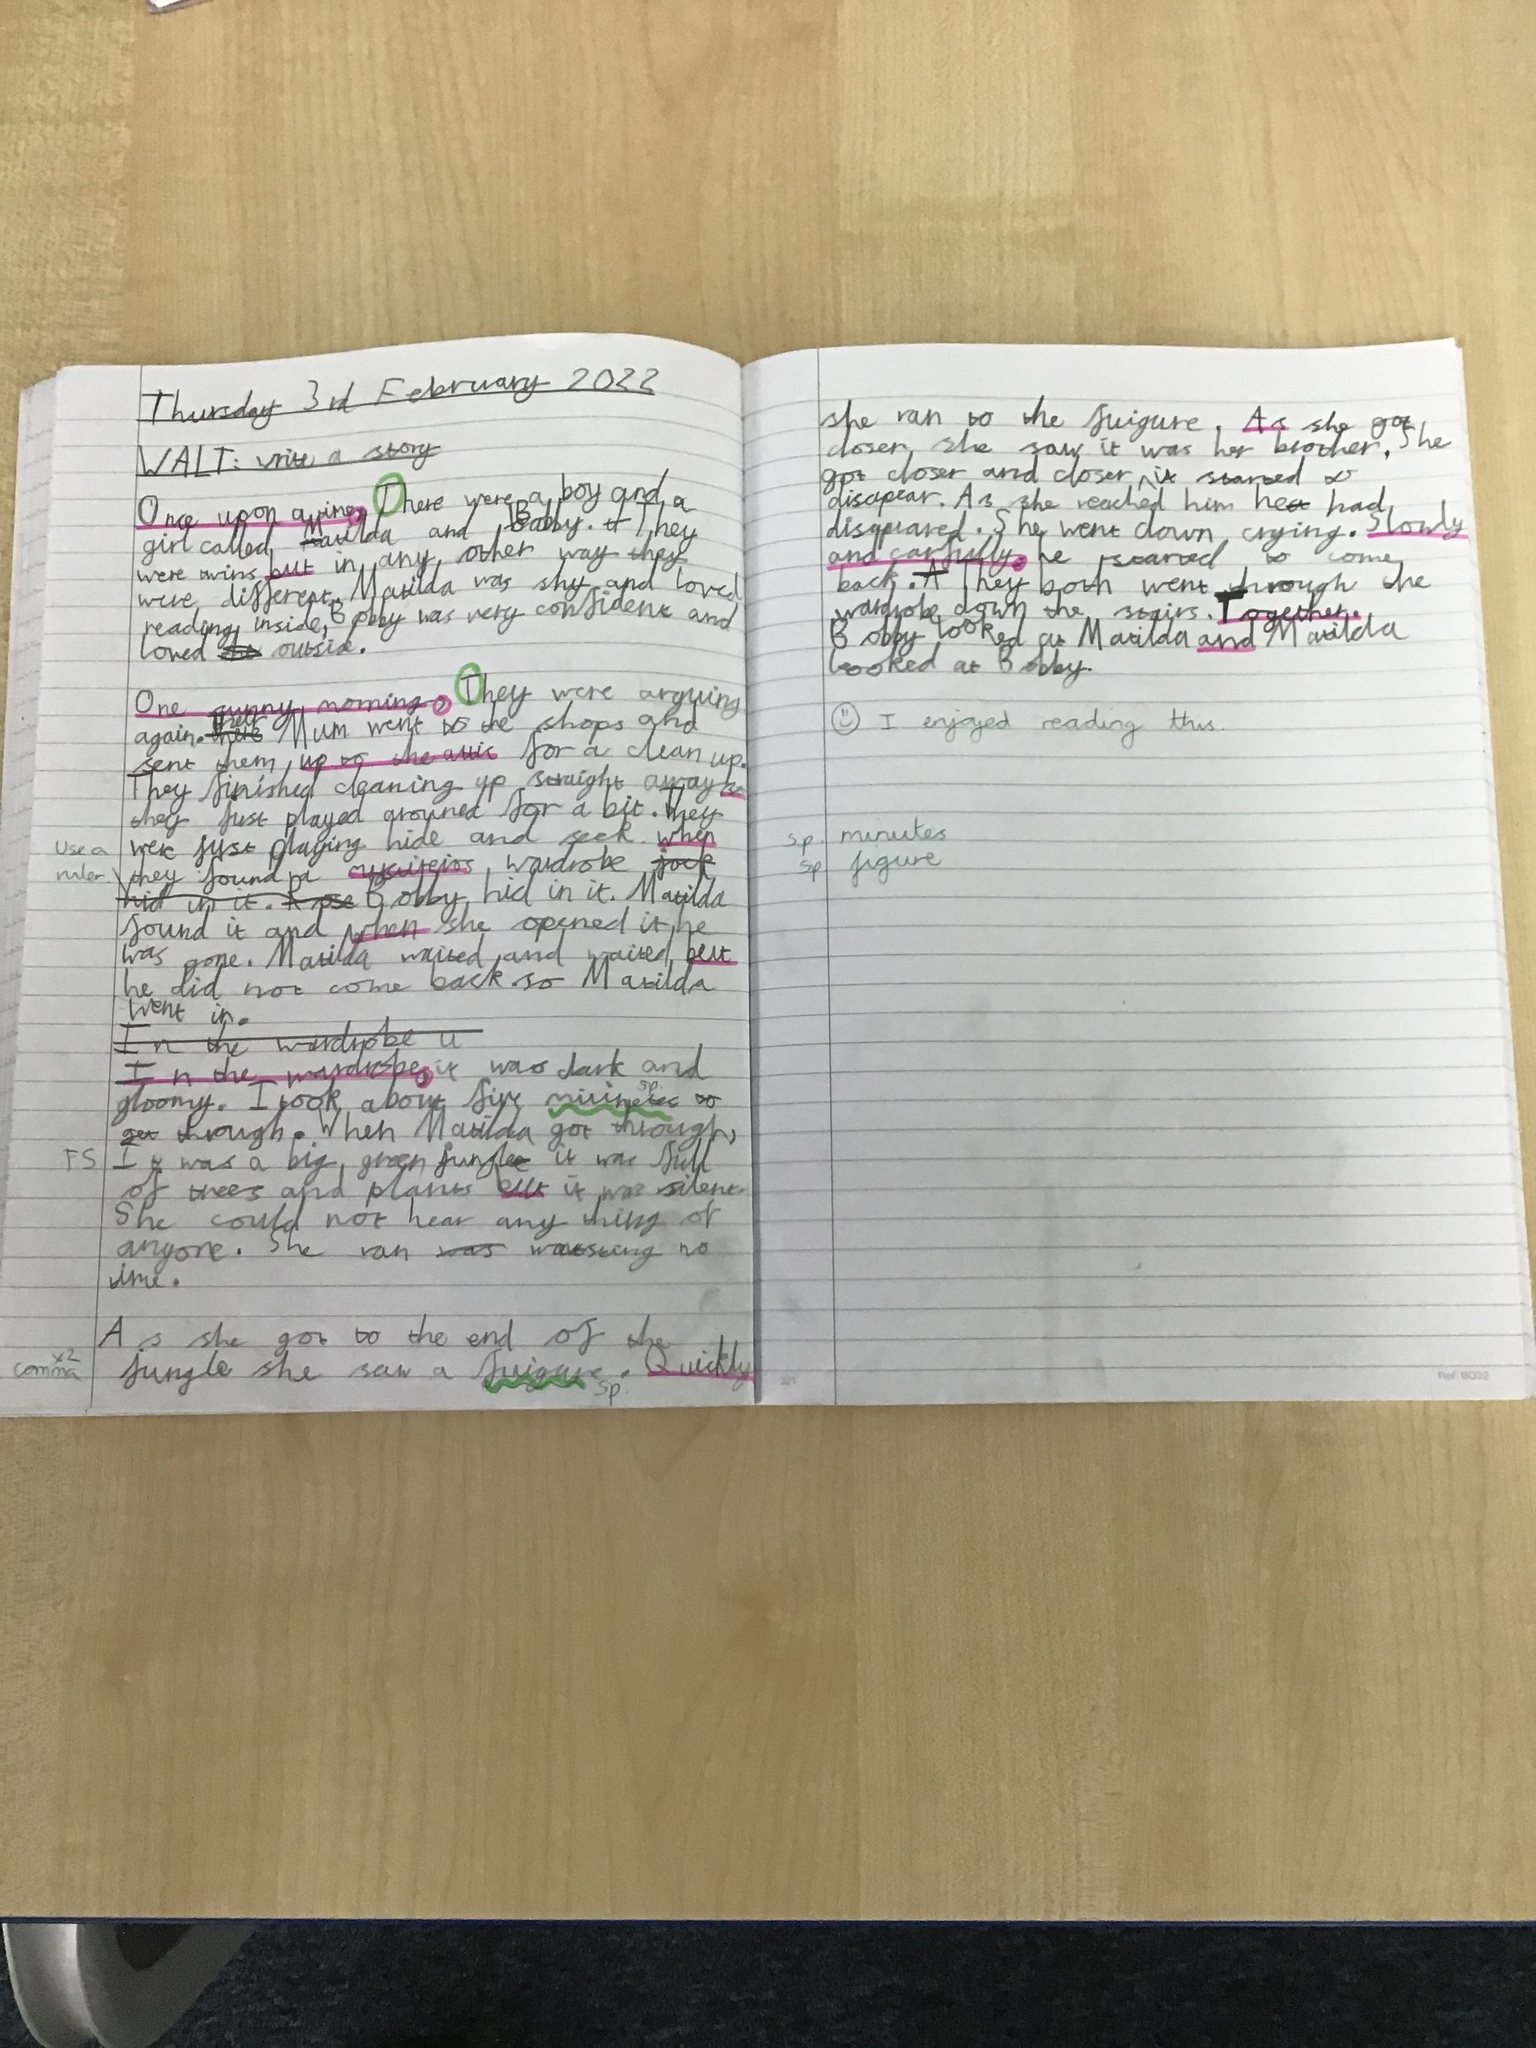 Thursday 3rd February 2022
WALT: write a story
Once upon a time, There were a boy and a
girl called Matilda and Bobby. They
were twins but in any other way they
were different. Matilda was shy and loved
reading inside, Bobby was very confident and
loved outside.
One sunny morning, They were arguing
again. their Mum went to the shops and
sent them up to the attic for a clean up.
They finished cleaning up straight away so
they just played arouned for a bit. They
were just playing hide and seek when
Use a
ruler.
they found a wardrobe jack
hid in it. Rose Bobby hid in it. Matilda
found it and when she opened it he
was gone. Matilda waited and waited but
he did not come back so Matilda
went in.
In the wardrobe u
In the wardrobe, it was dark and
gloomy. I took about five sp.
to
get through. When Matilda got through,
FS
It was a big green jungle it was full
of trees and plants but it was silent.
She could not hear any thing or
anyone. She ran was no
time.
As she got to the end of the
x2
comma
jungle she saw a fuigure. Quickly
sp
she ran to the fuigure. As she got
closer she saw it was her brother. She
got closer and closer, it started to
disapear. As she reached him he had
disapeared. She went down crying. Slowly
and carfully, he started to come
back. They both went through the
wardrobe down the stairs. Together.
Bobby looked at Matilda and Matilda
looked at Bobby.
I enjoyed reading this.
sp. minutes
sp figure
Ref: 8002